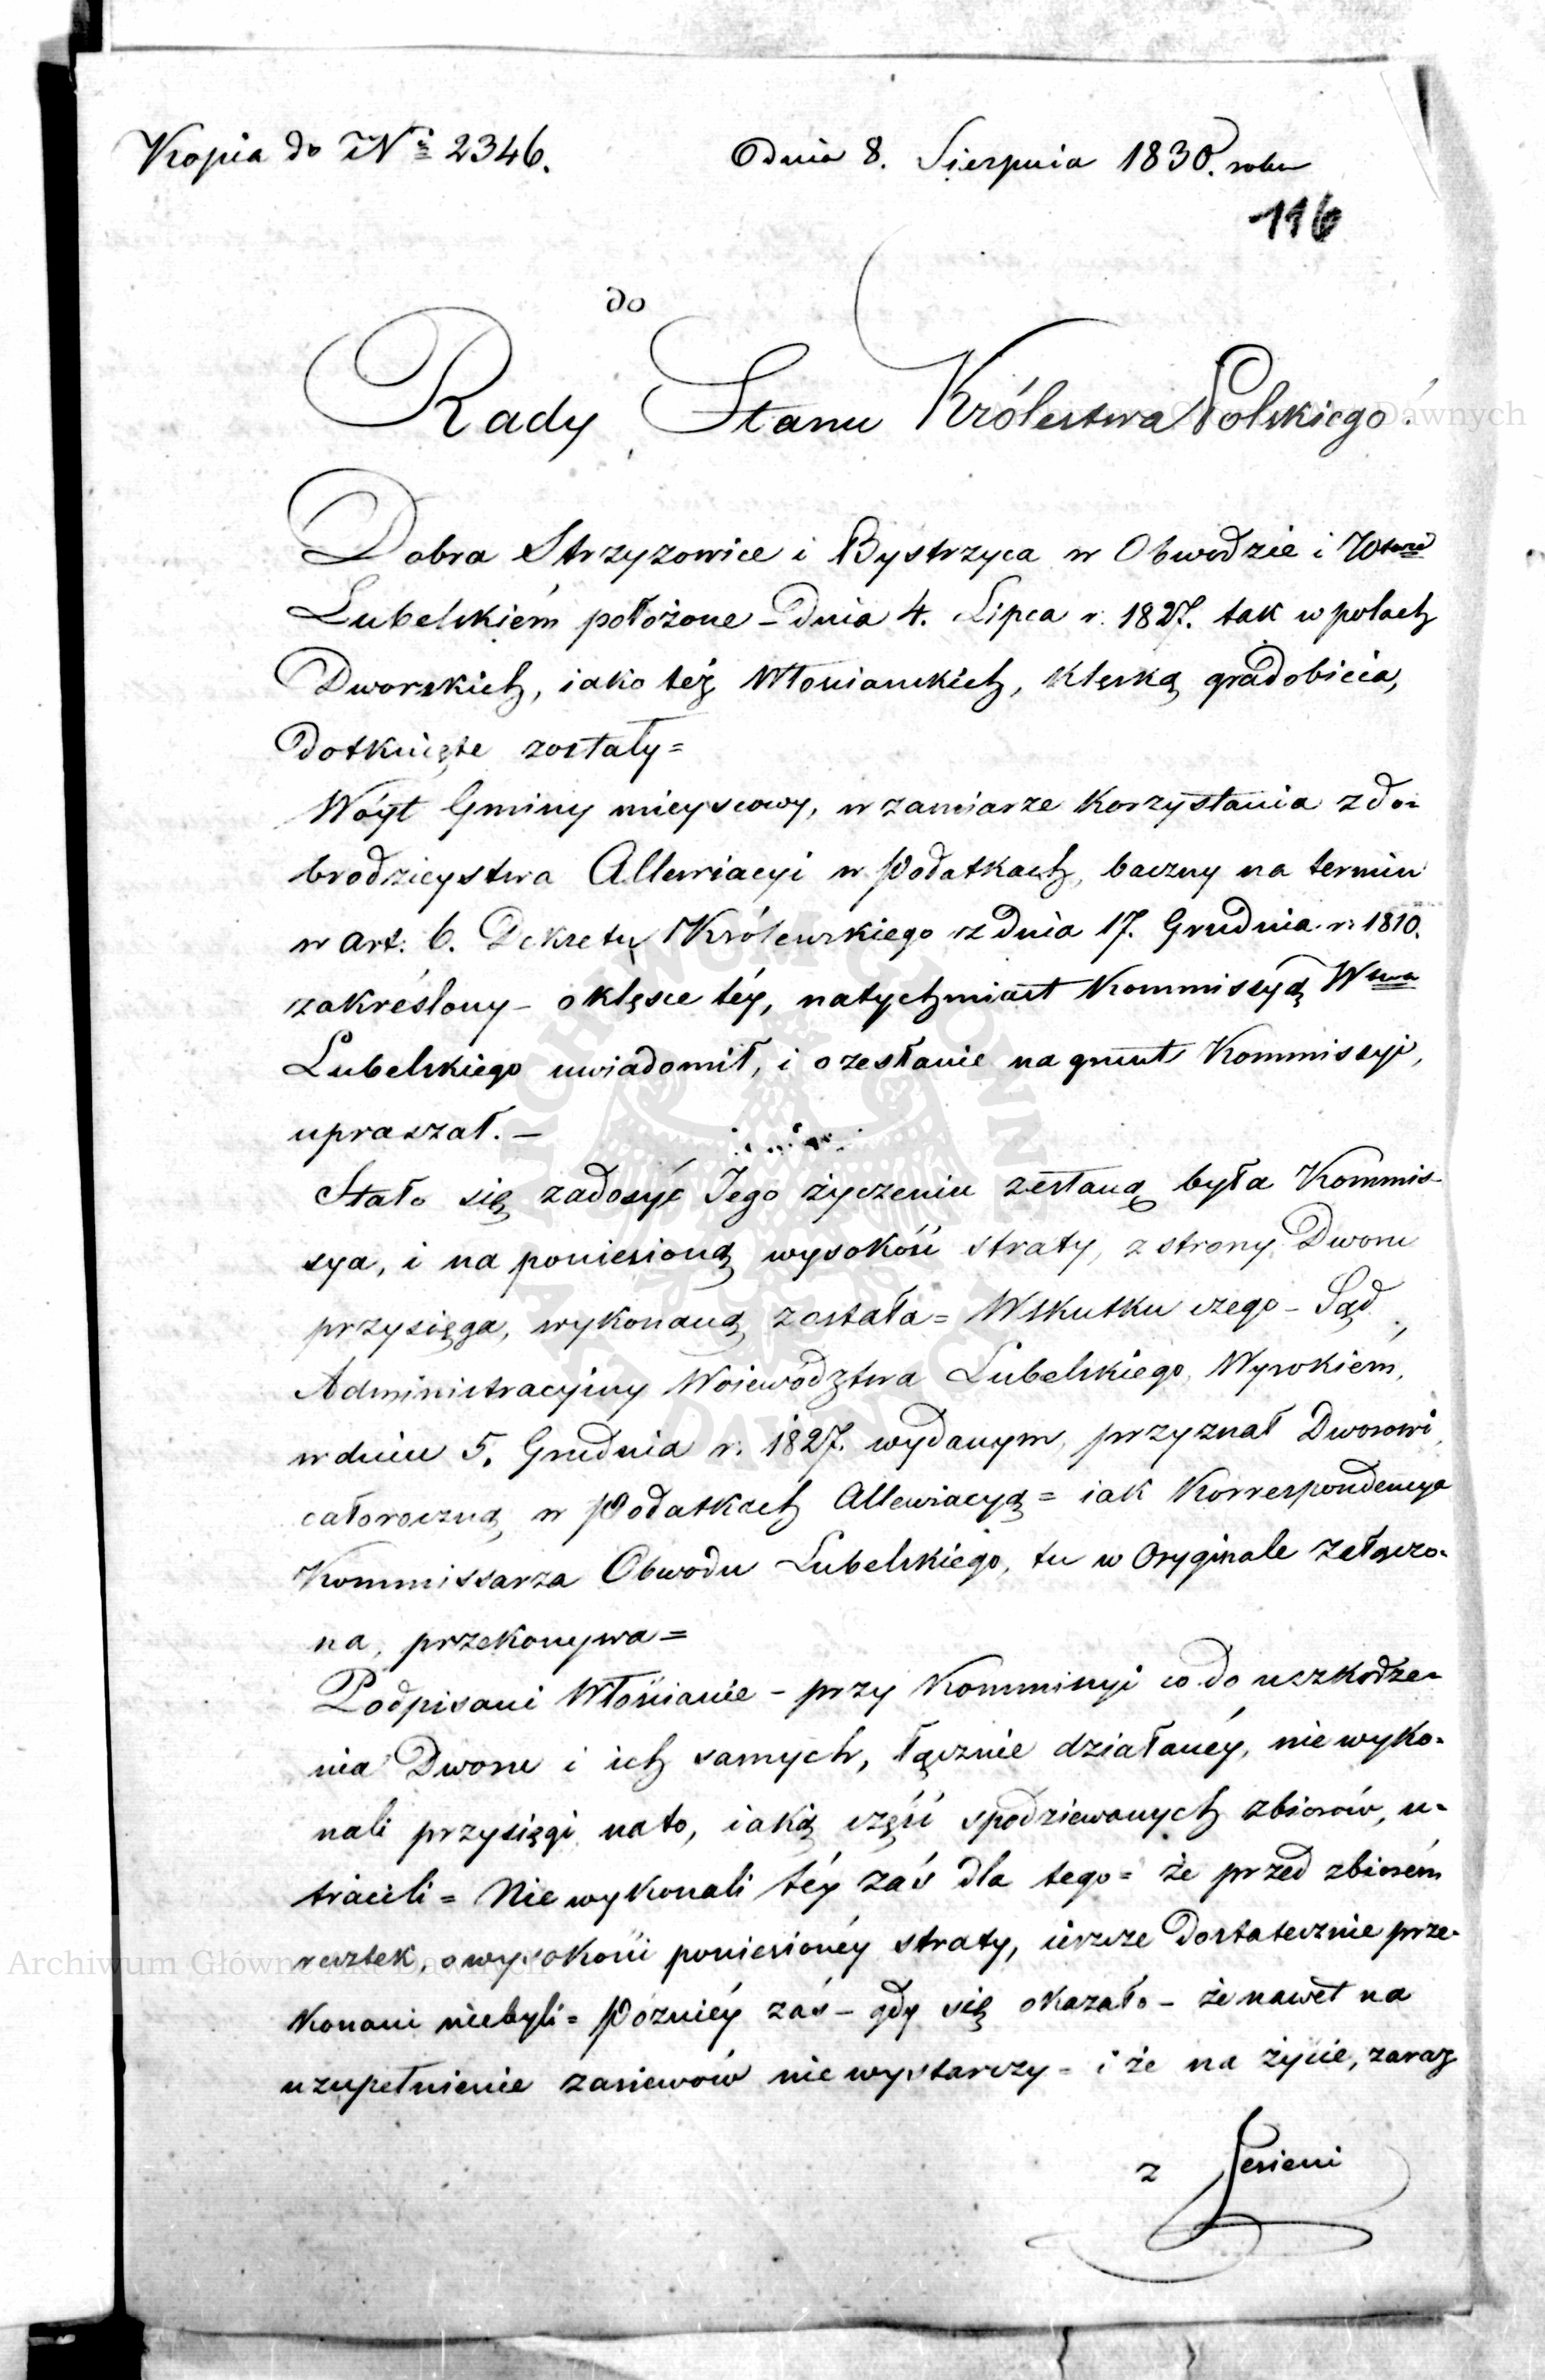 Kopia do Nr 2346. Dnia 8. Sierpnia 1830. roku
116
do
Rady Stanu Królestwa Polskiego.
Dobra Strzyzowice i Bystrzyca w Obwodzie i Wdztwie
Lubelskiém położone – Dnia 4. Lipca r. 1827. tak w polach
Dworskich, iako też Włosianskich, klęską gradobicia,
dotknięte zostały =
Wóyt Gminy mieyscowy, w zamiarze korzystania z do=
brodzieystwa Allewiacyi w Podatkach, baczny na termin
w art. 6. Dekretu Królewskiego z dnia 17. Grudnia r. 1810.
zakréślony – o klęsce téy, natychmiast Kommissyą Wwa
Lubelskiego uwiadomił, i o zesłanie na grunt Kommissyi,
upraszał. –
Stało się zadosyć Jego życzeniu zesłaną była Kommis-
sya, i na poniesioną wysokość straty, z strony Dworu
przysięga, wykonaną została = Wskutku czego – Sąd
Administracyiny Woiewództwa Lubelskiego, Wyrokiem,
w dniu 5. Grudnia r. 1827. wydanym, przyznał Dworowi
całoroczną w Podatkach Allewiacyą = iak Korrespondencya
Kommissarza Obwodu Lubelskiego, tu w Oryginale załączo=
na, przekonywa =
Podpisani Włościanie – przy Kommissyi co do uszkodze=
nia Dworu i ich samych, łącznie działanéy, nie wyko=
nali przysięgi na to, iaką część spodziewanych zbiorów, u=
tracili = Nie wykonali téy zaś dla tego = że przed zbiorém
resztek, o wysokości poniesionéy straty, ieszcze dostatecznie prze=
konani niebyli = Poźniéy zaś – gdy się okazało – że nawet na
uzupełnienie zasiewów nie wystarczy – i że na życie, zaraz
z Jesieni
Archiwum Główne Akt Dawnych
ARCHIWUM GŁÓWNE AKT DAWNYCH